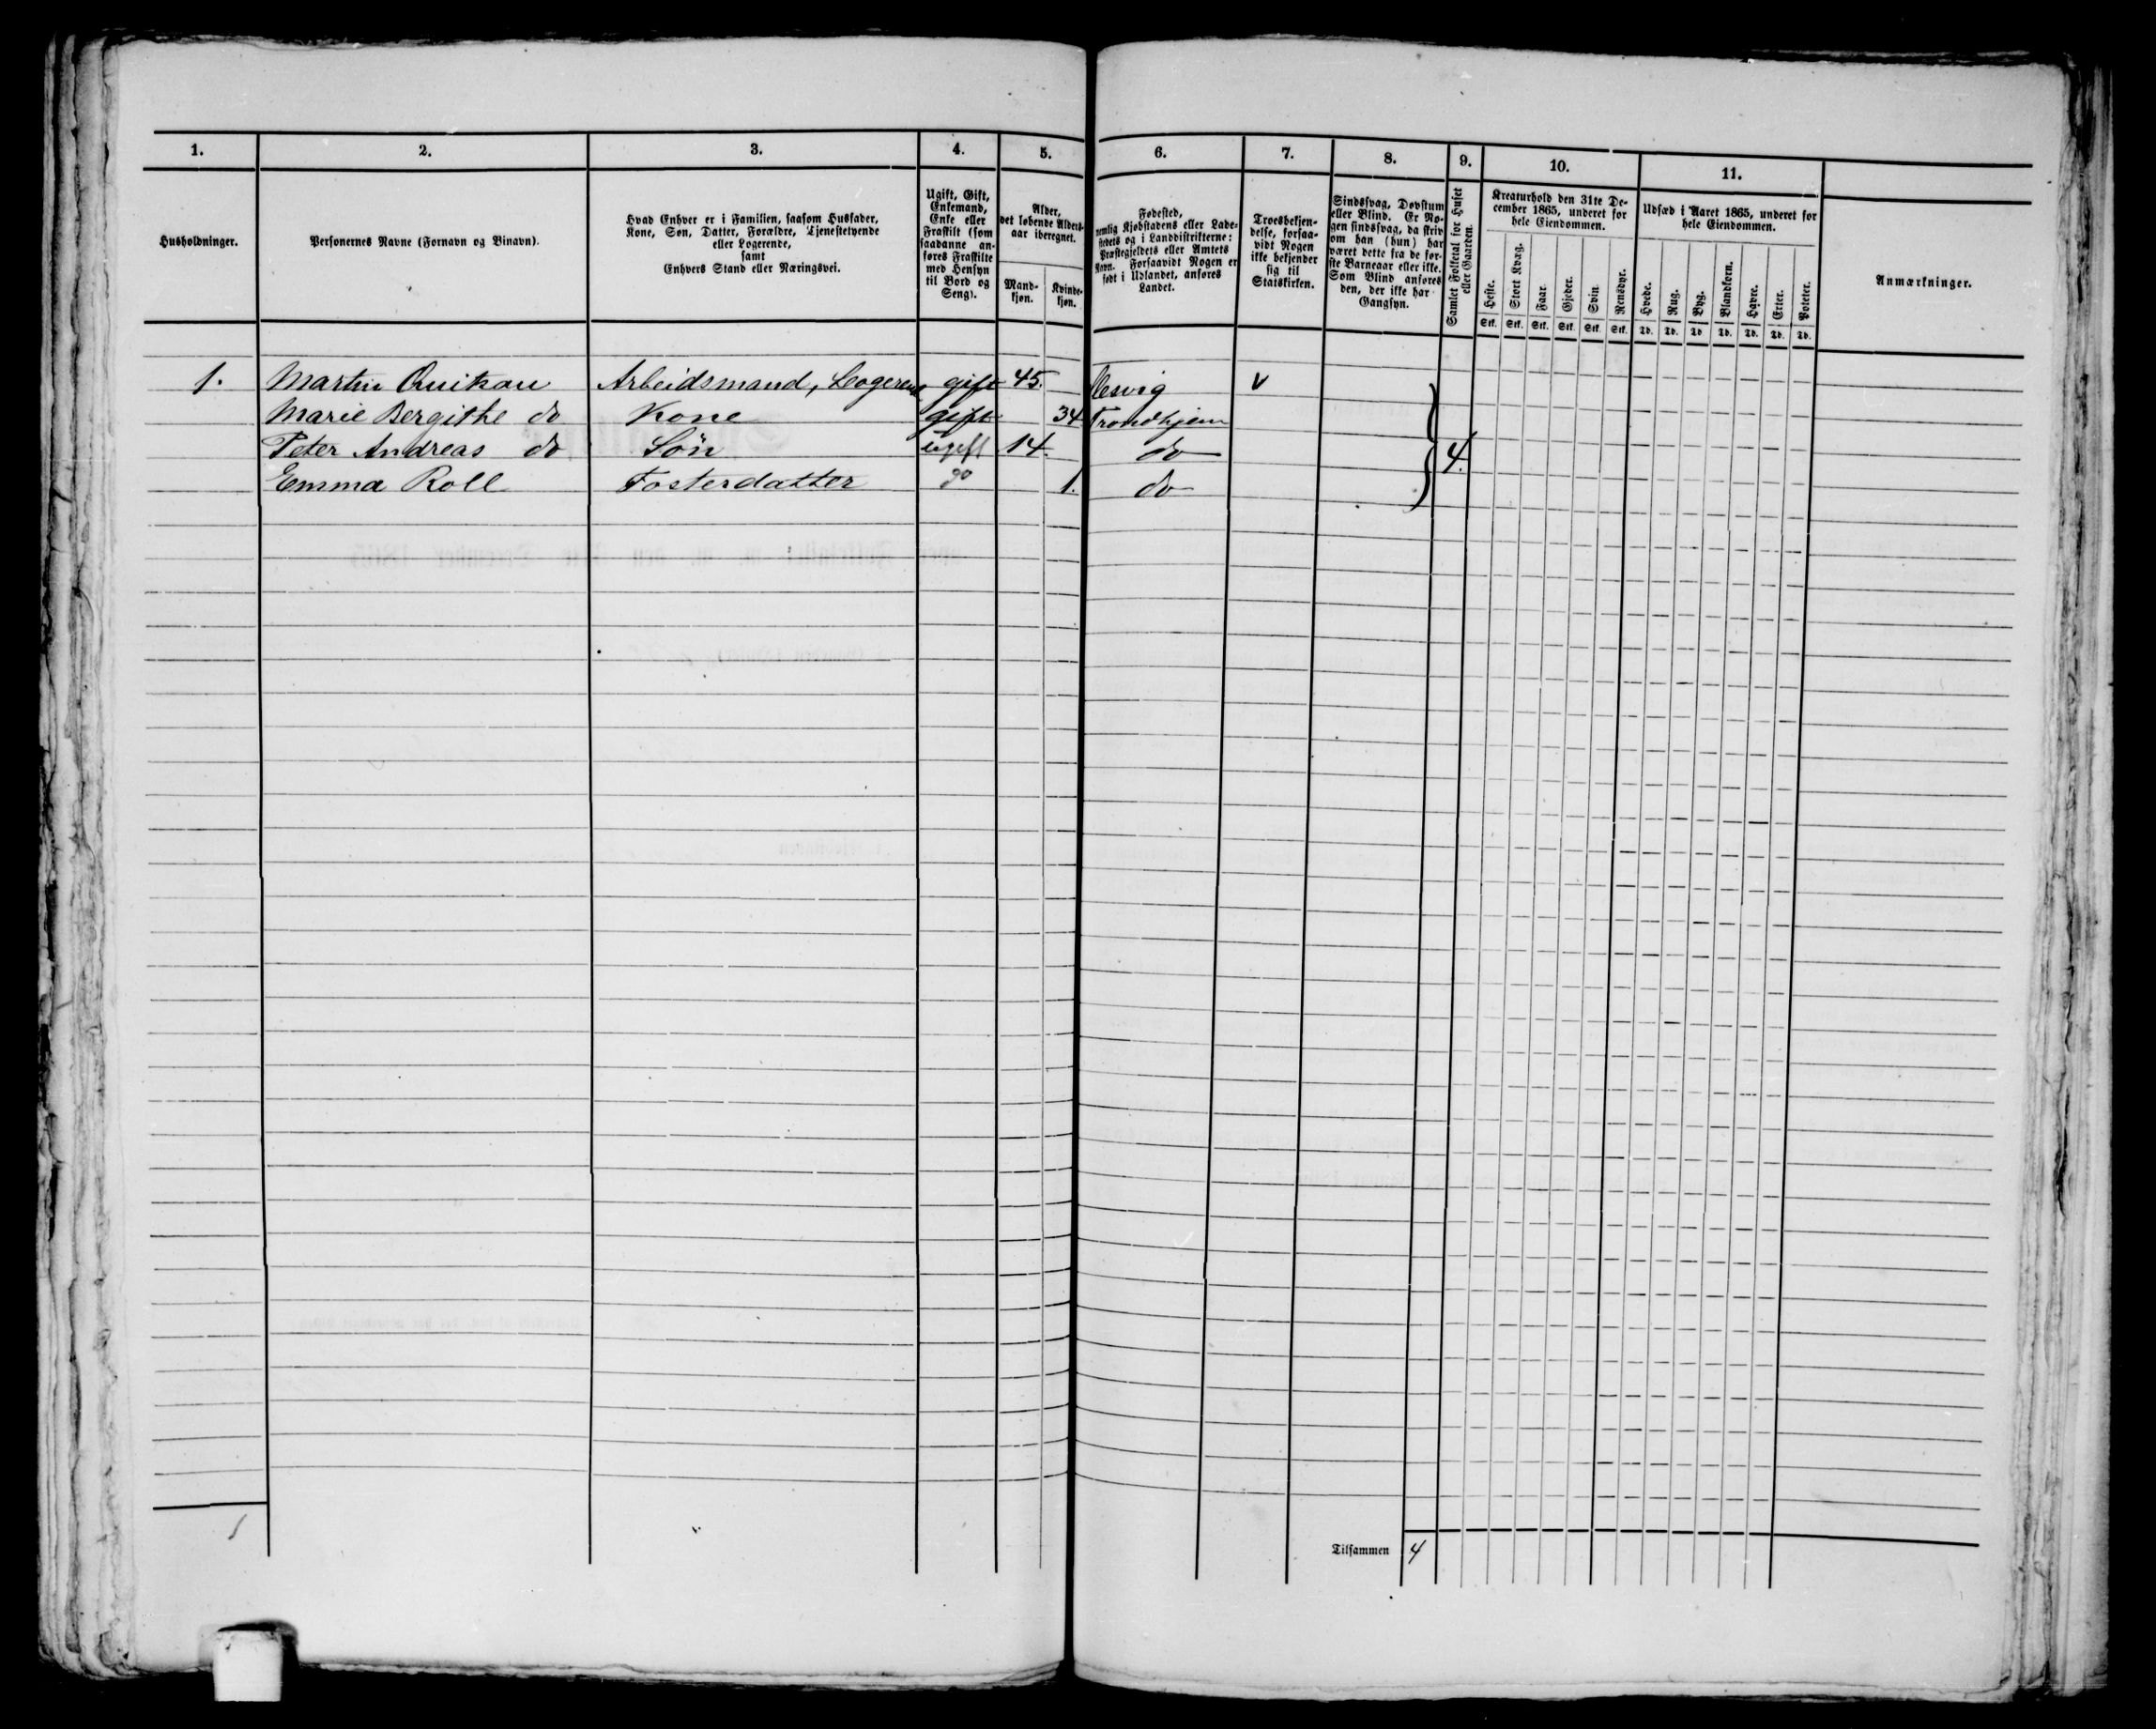 1. 2. 3. 4. 5. 6. 7. 8. 9. 10. 11.
Husholdninger.
Personernes Navne (Fornavn og Binavn).
Hvad Enhver er i Familien, saasom Husfader,
Kone, Søn, Datter, Forældre, Tjenestetyende
eller Logerende,
samt
Enhvers Stand eller Næringsvei.
Ugift, Gift,
Enkemand,
Enke eller
Fraskilt (som
saadanne an-
føres Fraskilte
med Hensyn
til Bord og
Seng).
Alder,
det løbende Alders-
aar iberegnet.
Mand-
kjøn.
Kvinde-
kjøn.
Fødested,
nemlig Kjøbstadens eller Lade-
stedets og i Landdistrikterne:
Præstegjeldets eller Amtets
Navn. Forsaavidt Nogen er
født i Udlandet, anføres
Landet.
Troesbekjen-
delse, forsaa-
vidt Nogen
ikke bekjender
sig til
Statskirken.
Sindssvag, Døvstum
eller Blind. Er No-
gen sindssvag, da skriv
om han (hun) har
været dette fra de før-
ste Barneaar eller ikke.
Som Blind anføres
den, der ikke har
Gangsyn.
Samlet Folketal for Huset
eller Gaarden.
Kreaturhold den 31te De-
cember 1865, underet for
hele Eiendommen.
Heste. Stort Kvæg. Faar. Gjeder. Svin. Rensdyr.
Stk. Stk. Stk. Stk. Stk. Stk.
Udsæd i Aaret 1865, underet for
hele Eiendommen.
Hvede. Rug. Byg. Blandkorn. Havre. Erter. Poteter.
Td. Td. Td. Td. Td. Td. Td.
Anmærkninger.
1. Martin Arbeidsmand, gift 45. v
Marie Bergithe do Kone gift 34 Trondhjem
Peter Andreas do Søn ugift 14. do 4.
Emma Roll Fosterdatter do 1. do
Tilsammen 4